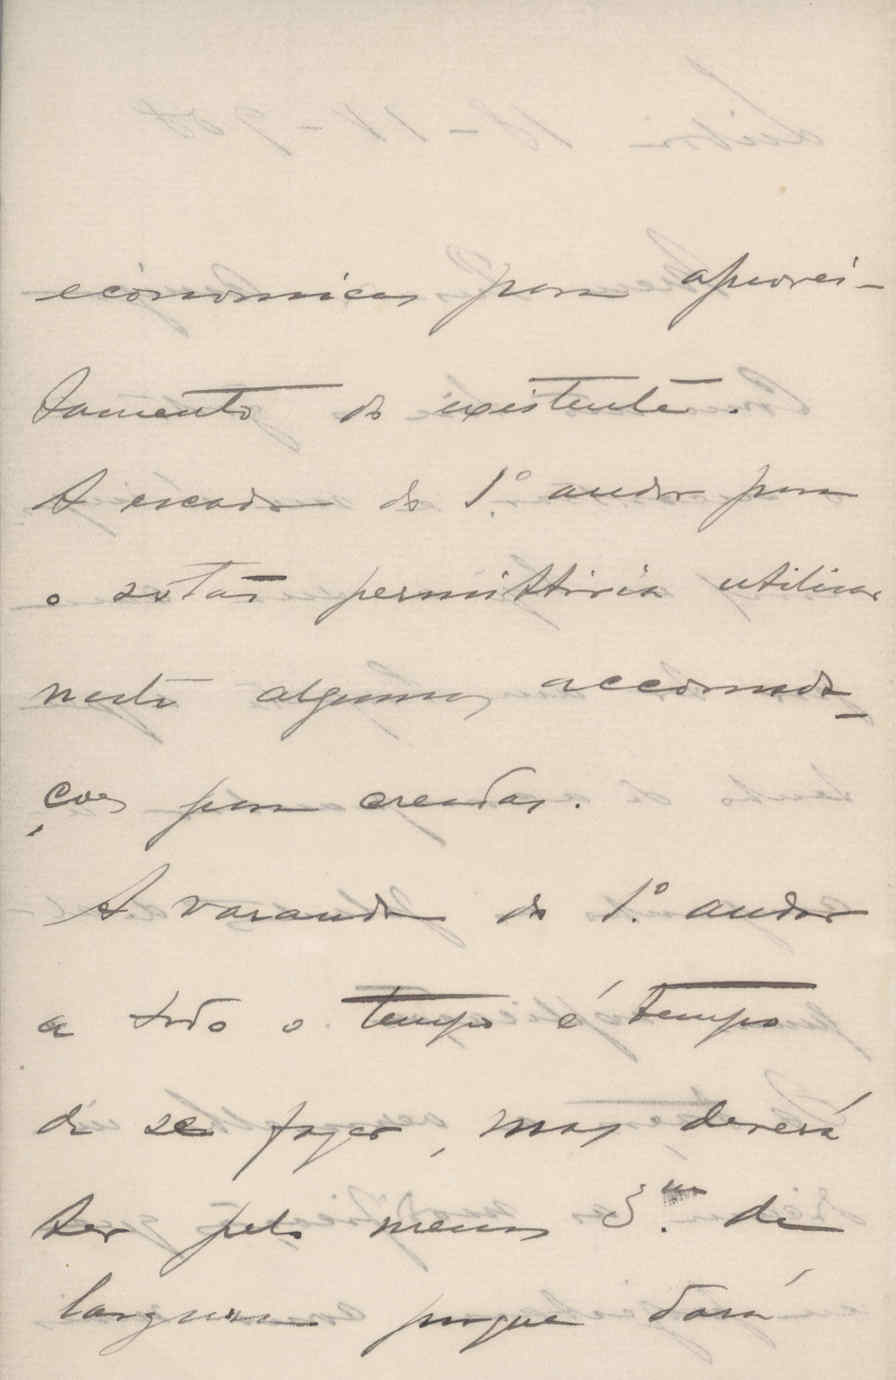 económicas para aprovei-
tamento do existente.
A escada do 1.º andar para
o sotão permittiria utilisar
neste algumas accomoda-
ções para creadas.
A varanda do 1.º andar
a todo o tempo é tempo
de se fazer, mas deverá
ter pelo menos 3.m de
largura porque dará